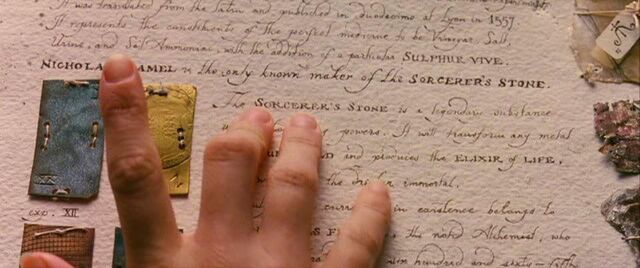 It was translated from the Latin and published in duodecimo at Lyon in 1557.
It represents the constituents of the perfect medicine to be Vinegar, Salt,
Urine, and Sal Ammoniac, with the addition of a particular SULPHUR VIVE.
NICHOLA AMEL is the only known maker of the SORCERER'S STONE.
The SORCERER'S STONE is a legendary substance
powers. It will transform any metal
and produces the ELIXIR of LIFE,
the drinker immortal.
in existence belongs to
exp. XII
the noted Alchemist, who
hundred and sixty-